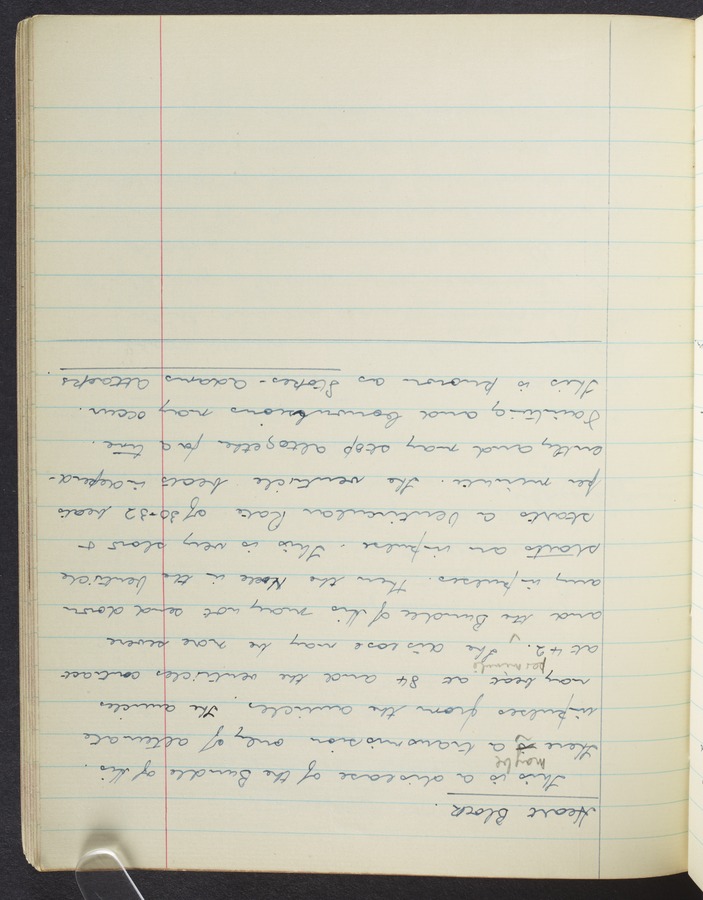 Heart Block.
This is a disease of the Bundle of His.
maybe
there is a transmission only of alternate
impulses from the auricles. The auricles
may beat at 84 and the ventricles contract
per minute
at 42. The disease may be more severe
and the Bundle of His may not send down
any impulses. Then the Node in the Ventricle
starts an impulse. This is very slow &
starts a Ventricular Rate of 30-32 beats
per minute. The ventricle beats independ-
ently and may stop altogether for a time.
Fainting and Convulsions may occur.
This is known as Stokes-Adams attacks.